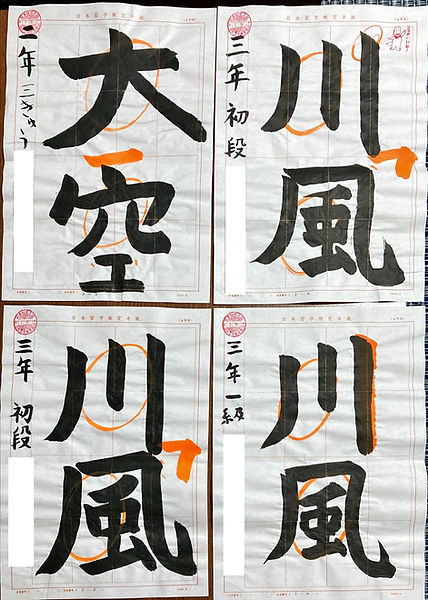 日本習字検定半紙
二年 三きゅう
大空
日本習字検定半紙
三年 初段
川風
日本習字検定半紙
三年 初段
川風
日本習字検定半紙
三年 一級
川風